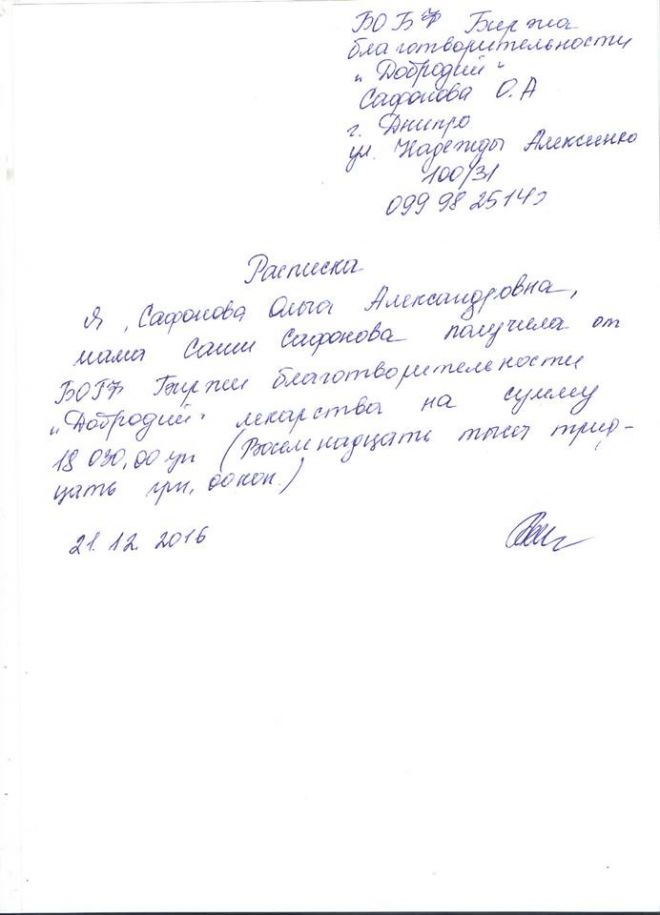 БО БФ Биржа
благотворительности
"Добродий"
Сафонова О.А
г. Днипро
ул. Надежды Алексенко
100/31
099 98 25 14
Расписка
Я, Сафонова Ольга Александровна,
мама Саши Сафонова получила от
БО БФ Биржи благотворительности
"Добродий" лекарства на сумму
18 030,00 грн (Восемнадцать тысяч трид-
цать грн, 00 коп.)
21.12.2016